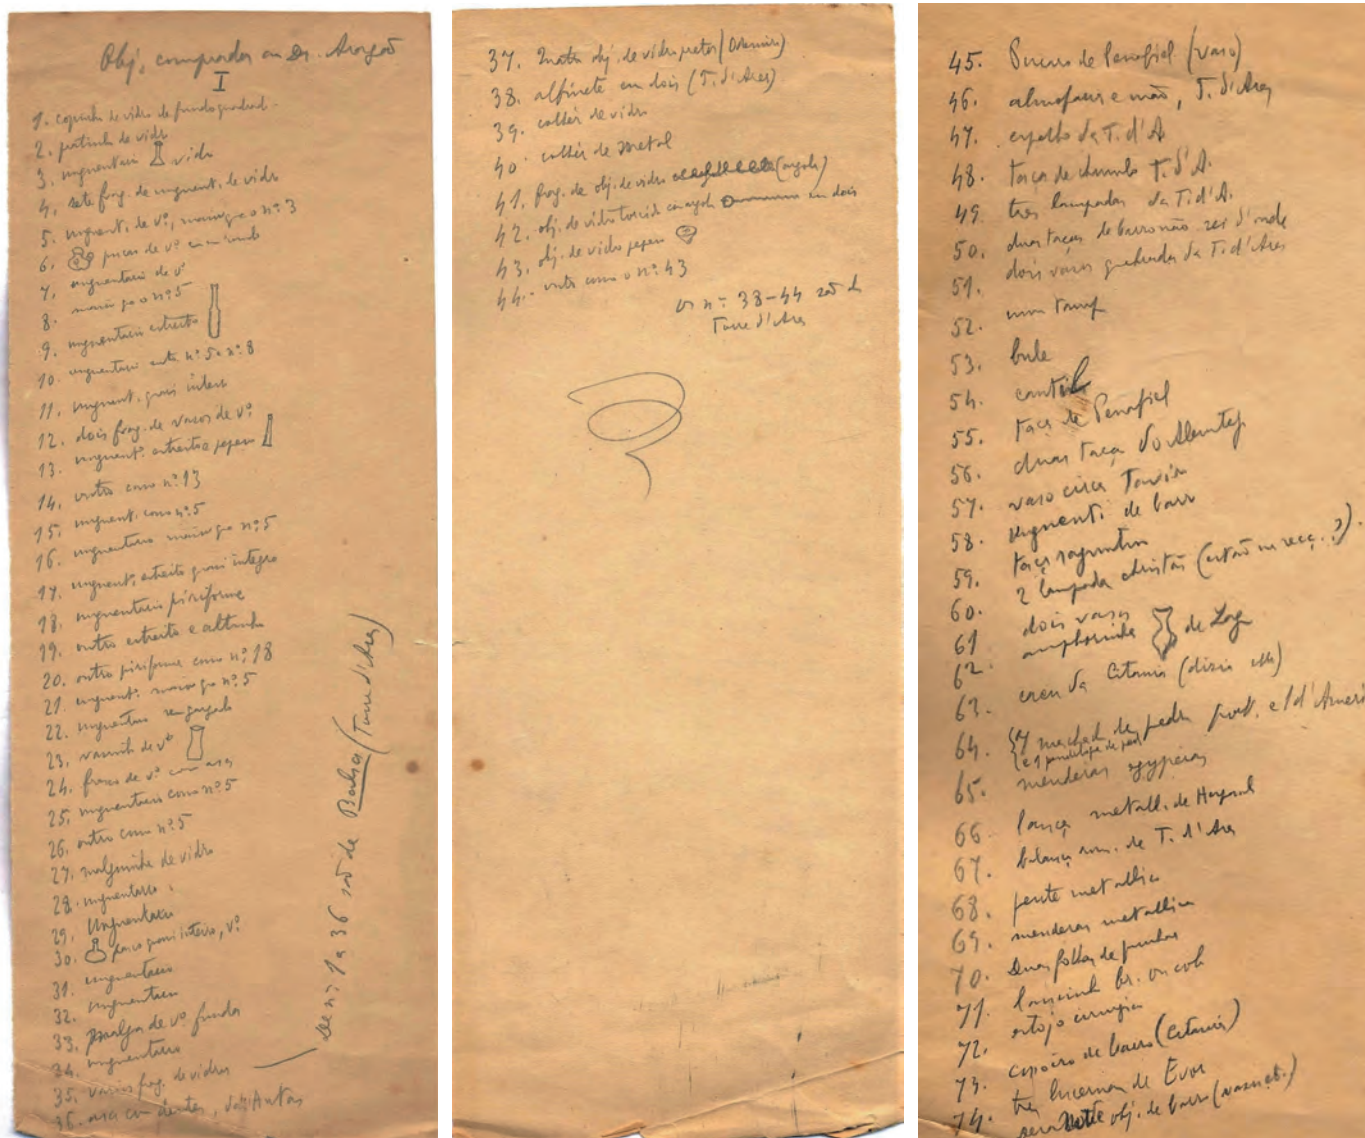 Obj. comprados ao Dr. Aragão
I
1. copinho de vidro de fundo quadrad.
2. pratinho de vidro
3. unguentario vidro
4. sete frag. de unguent. de vidro
5. unguent. de vº, maior q o nº 3
6. peças de vº
7. unguentario de vº
8. maior q o nº 5
9. unguentario estreito
10. unguentario entre nº 5 e nº 8
11. unguent. quasi inteiro
12. dois frag. de vasos de vº
13. unguent. estreito e pequeno
14. outro como nº 13
15. unguent. como nº 5
16. unguentario maior q o nº 5
17. unguent. estreito quasi integro
18. unguentario piriforme
19. outro estreito e altinho
20. outro piriforme como nº 18
21. unguent. maior q o nº 5
22. unguentario
23. vasinho de vº
24. frasco de vº com asa
25. unguentario como nº 5
26. outro como nº 5
27. malguinha de vidro
28. unguentario
29. Unguentario
30. frasco quasi inteiro, vº
31. unguentario
32. unguentario
33. malga de vº funda
34. unguentario
35. varios frag. de vidros
36. asa com dentes,
de nº 1 a 36 são de Balsa (Torre d'Ares)
37. obj. de vidro pretos
38. alfinete em dois (T. d'Ares)
39. colhér de vidro
40. colhér de metal
41. frag. de obj. de vidro (argola)
42. obj. de vidro torcido com argola em dois
43. obj. de vidro pequeno
44. outro como o nº 43
os nº 38-44 são da
Torre d'Ares
45. Pucaro de Penafiel (vaso)
46. almofariz e mão, T. d'Ares
47. espelho da T. d'A
48. taça de chumbo T. d'A.
49. tres lampadas da T. d'A.
50. duas taças de barro não sei d'onde
51. dois vasos quebrados da T. d'Ares
52. um
53. bule
54. cantil
55. taça de Penafiel
56. duas taça do Alemtejo
57. vaso Tavira
58. unguenti de barro
59. taça saguntina
60. 2 lampada christãs (estão na secç. ?).
61 dois vasos
62. amphorinha de
63. da Citania (dizia elle)
64. 7 machad. de pedra port. e 1 d'Ameri
65. menderas egypcias
66. lança metall. de
67. balança rom. de T. d'Ares
68. pente metallico
69. menderas metallica
70. duas folhas de punhal
71. br. ou cob
72. estojo cirurgia
73. de barro (Citania)
74. tres lucernas de Evora
obj. de barro